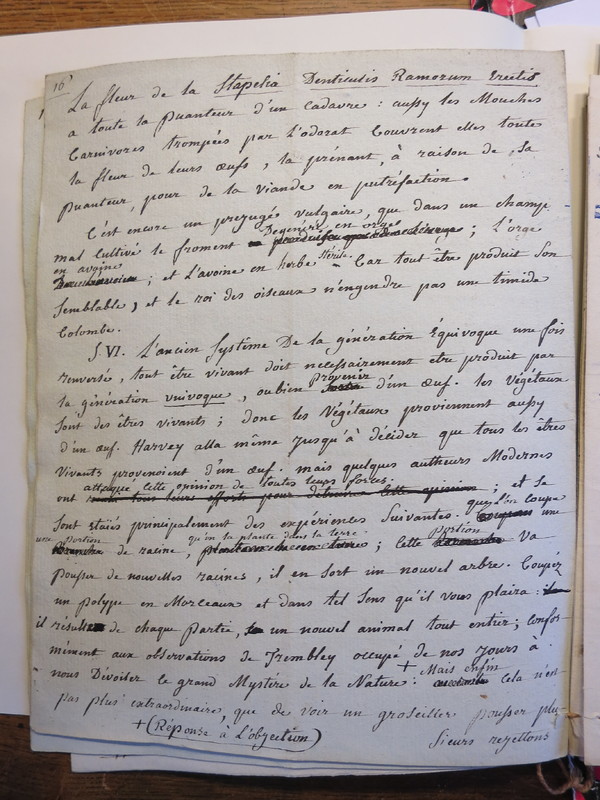 16
La fleur de la Stapelia Denticulis Ramorum Erectis
a toute la Puanteur d'un Cadavre : aussy les Mouches
Carnivores trompées par l'odorat Couvrent elles toute
la fleur de leurs œufs, la prénant, à raison de sa
puanteur, pour de la viande en putréfaction.
C'est encore un prejugé vulgaire, que dans un champ
mal Cultivé le froment Degenére en orge ; L'orge
en avoine ; et L'avoine en herbe Stérile. Car tout être produit son
Semblable, et le roi des oiseaux n'engendre pas une timide
Colombe.
§. VI. L'ancien Systême De la génération Équivoque une fois
renversée, tout être vivant doit necessairement etre produit par
la génération univoque, oubien provenir d'un œuf. les Végétaux
sont des êtres vivants ; donc les Végétaux proviennent aussy
d'un œuf. Harvey alla même jusqu'à décider que tous les êtres
Vivants provenoient d'un œuf. mais quelques autheurs Modernes
ont attaqué cette opinion de toutes leurs forces ; et se
sont étaïés principalement des expériences Suivantes. que L'on Coupe une
une portion de racine, qu'on la plante dans la terre ; Cette portion va
pousser de nouvelles racines, il en sort un nouvel arbre. Coupéz
un polype en Morceaux et dans tel Sens qu'il vous plaira :
il résulte de chaque partie, un nouvel animal tout entier ; Confor-
mément aux observations de Trembley occupé de nos jours à
nous Dévoiler le grand Mystère de la Nature. + Mais enfin Cela n'est
pas plus extraordinaire, que de voir un groseiller pousser plu-
+ (Réponse à L'objection)
sieurs rejettons